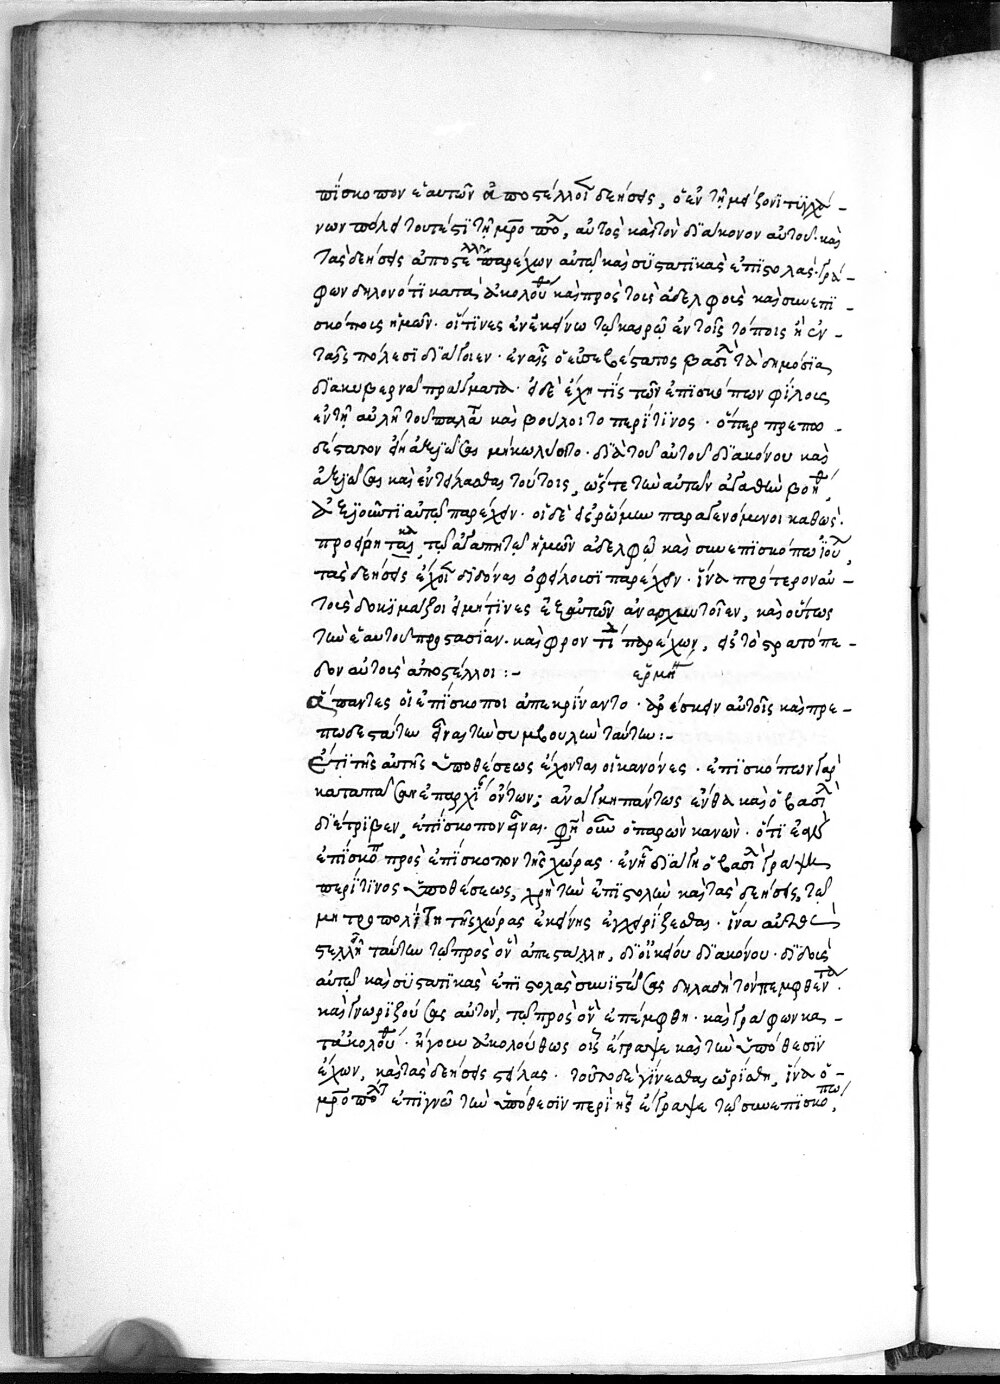 πίσκοπον ἑαυτῶν ἀποστέλλοι δεήσεις, ὁ ἐν τῇ μείζονι τυγχά-
νων πόλει τουτέστι τῇ μροπό, αὐτὸς καὶ τὸν διάκονον αὐτοῦ καὶ
τὰς δεήσεις ἀποστελλέτω παρέχων αὐτῷ καὶ συστατικὰς ἐπιστολὰς. γρά-
φων δηλονότι κατὰ ἀκολουθ καὶ πρὸς τοὺς ἀδελφοὺς καὶ συνεπι-
σκόπους ἡμῶν. οἵτινες ἐν ἐκείνω τῷ καιρῷ ἐν τοῖς τόποις ἢ ἐν
ταῖς πόλεσι διάγοιεν. ἐν αἷς ὁ εὐσεβέστατος βασιλ τὰ δημόσια
διακυβερνᾷ πράγματα. εἰ δὲ ἔχει τίς τῶν ἐπισκόπων φίλους
ἐν τῇ αὐλῇ τοῦ παλατ καὶ βούλοιτο περί τινος. ὅπερ πρεπω-
δέστατον εἴη ἀξιῶσαι μὴ κωλύοιτο. διὰ τοῦ αὐτοῦ διακόνου καὶ
ἀξιῶσαι καὶ ἐντείλασθαι τούτοις, ὥστε τὴν αὐτῶν ἀγαθὴν βοηθ
ἀξιοῦντι αὐτῷ παρέχειν. οἱ δὲ εἰς ῥώμην παραγενόμενοι καθὼς
προείρηται, τῷ ἀγαπητῷ ἡμῶν ἀδελφῷ καὶ συνεπισκόπω ἰου,
τὰς δεήσεις ἃς ἔχοι διδόναι ὀφείλουσι παρέχειν. ἵνα πρότερον αὐ-
τοὺς δοκιμάζοι εἰ μή τινες ἐξ αὐτῶν ἀναισχυντοῖεν, καὶ οὕτως
τὴν ἑαυτοῦ προστασίαν καὶ φροντι παρέχων, εἰς τὸ στρατόπε-
δον αὐτοὺς ἀποστέλλοι :- ἑρμη
ἅπαντες οἱ ἐπίσκοποι ἀπεκρίναντο. ἀρέσκειν αὐτοῖς καὶ πρε-
πωδεστάτην εἶναι τὴν συμβουλὴν ταύτην :-
Ἔτι τῆς αὐτῆς ὑποθέσεως ἔχονται οἱ κανόνες. ἐπισκόπων γὰρ
κατὰ πᾶσαν ἐπαρχίαν ὄντων; ἀνάγκη πάντως ἔνθα καὶ ὁ βασιλ
διέτριβεν, ἐπίσκοπον εἶναι. φησὶν οὖν ὁ παρὼν κανὼν. ὅτι ἐὰν
ἐπίσκοπ πρὸς ἐπίσκοπον τῆς χώρας. ἐν ᾗ διάγει ὁ βασιλ γράψει
περί τινος ὑποθέσεως, χρὴ τὴν ἐπιστολὴν καὶ τὰς δεήσεις, τῷ
μητροπολίτῃ τῆς χώρας ἐκείνης ἐγχειρίζεσθαι. ἵνα αὐτὸς
στέλλῃ ταύτην τῷ πρὸς ὃν ἀπεστάλη, δι οἰκείου διακόνου. διδοὺς
αὐτῷ καὶ συστατικὰς ἐπιστολὰς συνιστώσας δηλαδὴ τὸν πεμφθέντα.
καὶ γνωριζούσας αὐτὸν, τῷ πρὸς ὃν ἐπέμφθη. καὶ γράφων κα-
τακολουθ. ἤγουν ἀκολούθως οἷς ἔγραψε καὶ τὴν ὑπόθεσιν
ἔχων, καὶ τὰς δεήσεις στεῖλαι. τοῦτο δὲ γίνεσθαι ὡρίσθη, ἵνα ὁ-
μροπολτ ἐπιγνῷ τὴν ὑπόθεσιν περὶ ἧς ἔγραψε τῷ συνεπισκόπω,